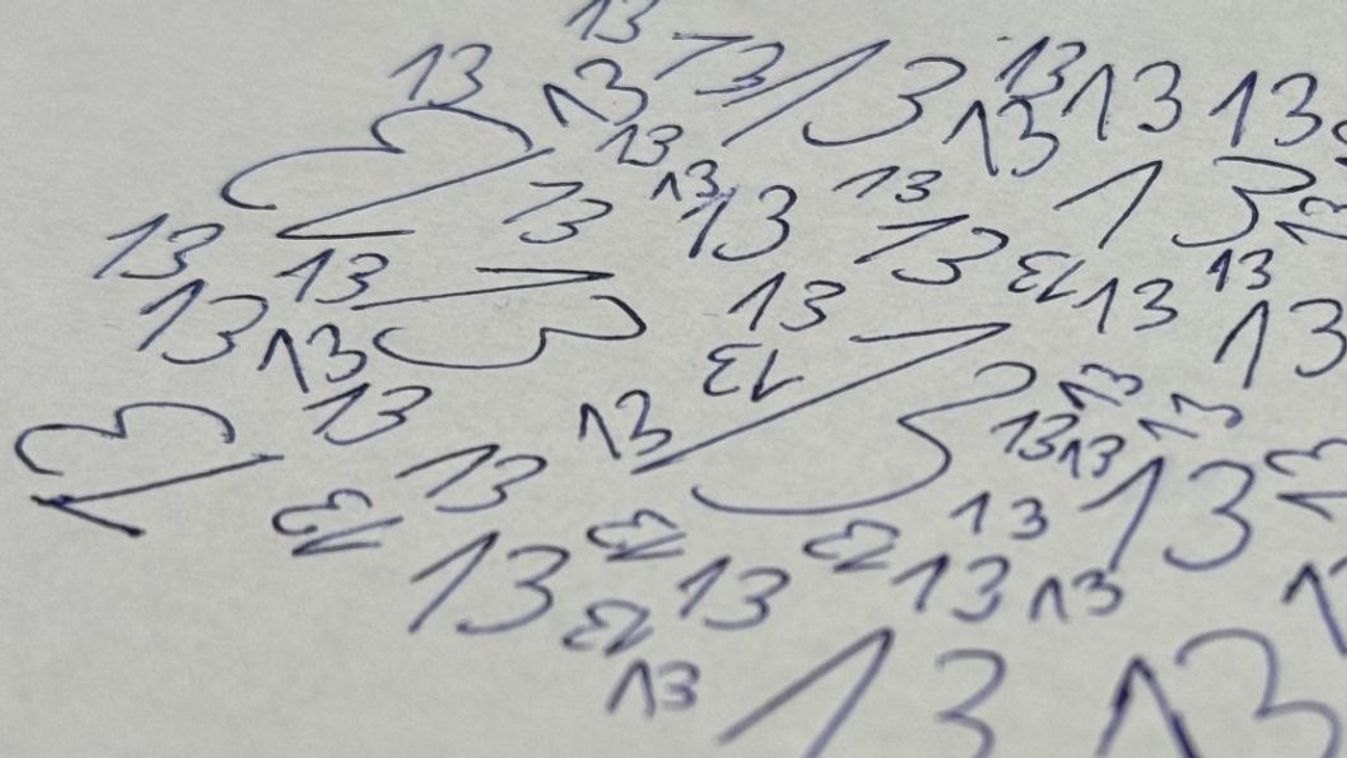 13
13 13 13 13
13 13 13 13
13 13 13
13 13 13 13 13
13 13 13 13
13 13 13 13 13
13 13 13 13
13 13 13 13
13 13 13 13
13 13 13 13 13
13 13 13 13
13 13 13 13
13 13 13
13 13 13